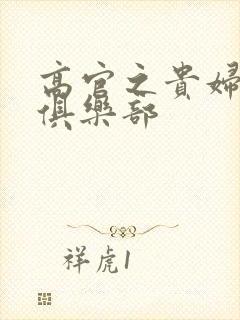 高官之貴婦
俱樂部
祥虎1